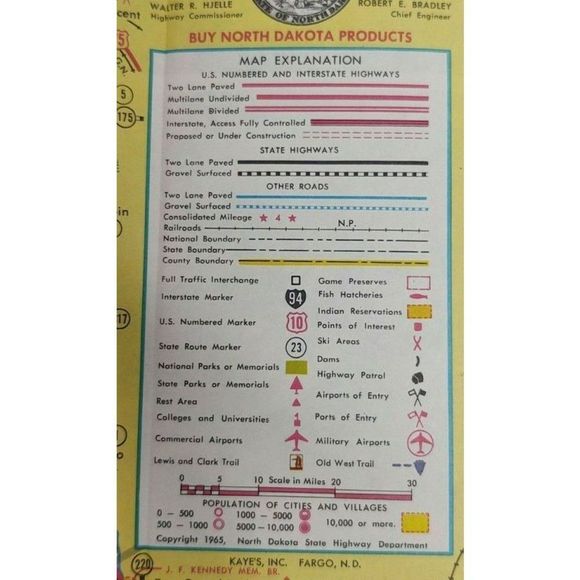 WALTER R. HJELLE
Highway Commissioner
ROBERT E. BRADLEY
Chief Engineer
BUY NORTH DAKOTA PRODUCTS
MAP EXPLANATION
U.S. NUMBERED AND INTERSTATE HIGHWAYS
Two Lane Paved
Multilane Undivided
Multilane Divided
Interstate, Access Fully Controlled
Proposed or Under Construction
STATE HIGHWAYS
Two Lane Paved
Gravel Surfaced
OTHER ROADS
Two Lane Paved
Gravel Surfaced
Consolidated Mileage ★ 4 ★
Railroads N.P.
National Boundary
State Boundary
County Boundary
Full Traffic Interchange
Interstate Marker 94
U.S. Numbered Marker 10
State Route Marker 23
National Parks or Memorials
State Parks or Memorials
Rest Area
Colleges and Universities
Commercial Airports
Lewis and Clark Trail
Game Preserves
Fish Hatcheries
Indian Reservations
Points of Interest
Ski Areas
Dams
Highway Patrol
Airports of Entry
Ports of Entry
Military Airports
Old West Trail
0 5 10 Scale in Miles 20 30
POPULATION OF CITIES AND VILLAGES
0 - 500 1000 - 5000
500 - 1000 5000 - 10,000 10,000 or more.
Copyright 1965, North Dakota State Highway Department
KAYE'S, INC. FARGO, N.D.
220
J. F. KENNEDY MEM. BR.
cent
5
5
175
in
17